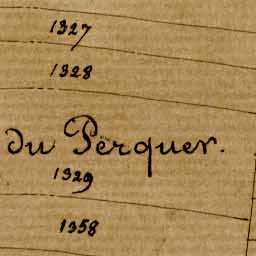 1327
1328
du Përquer.
1329
1358